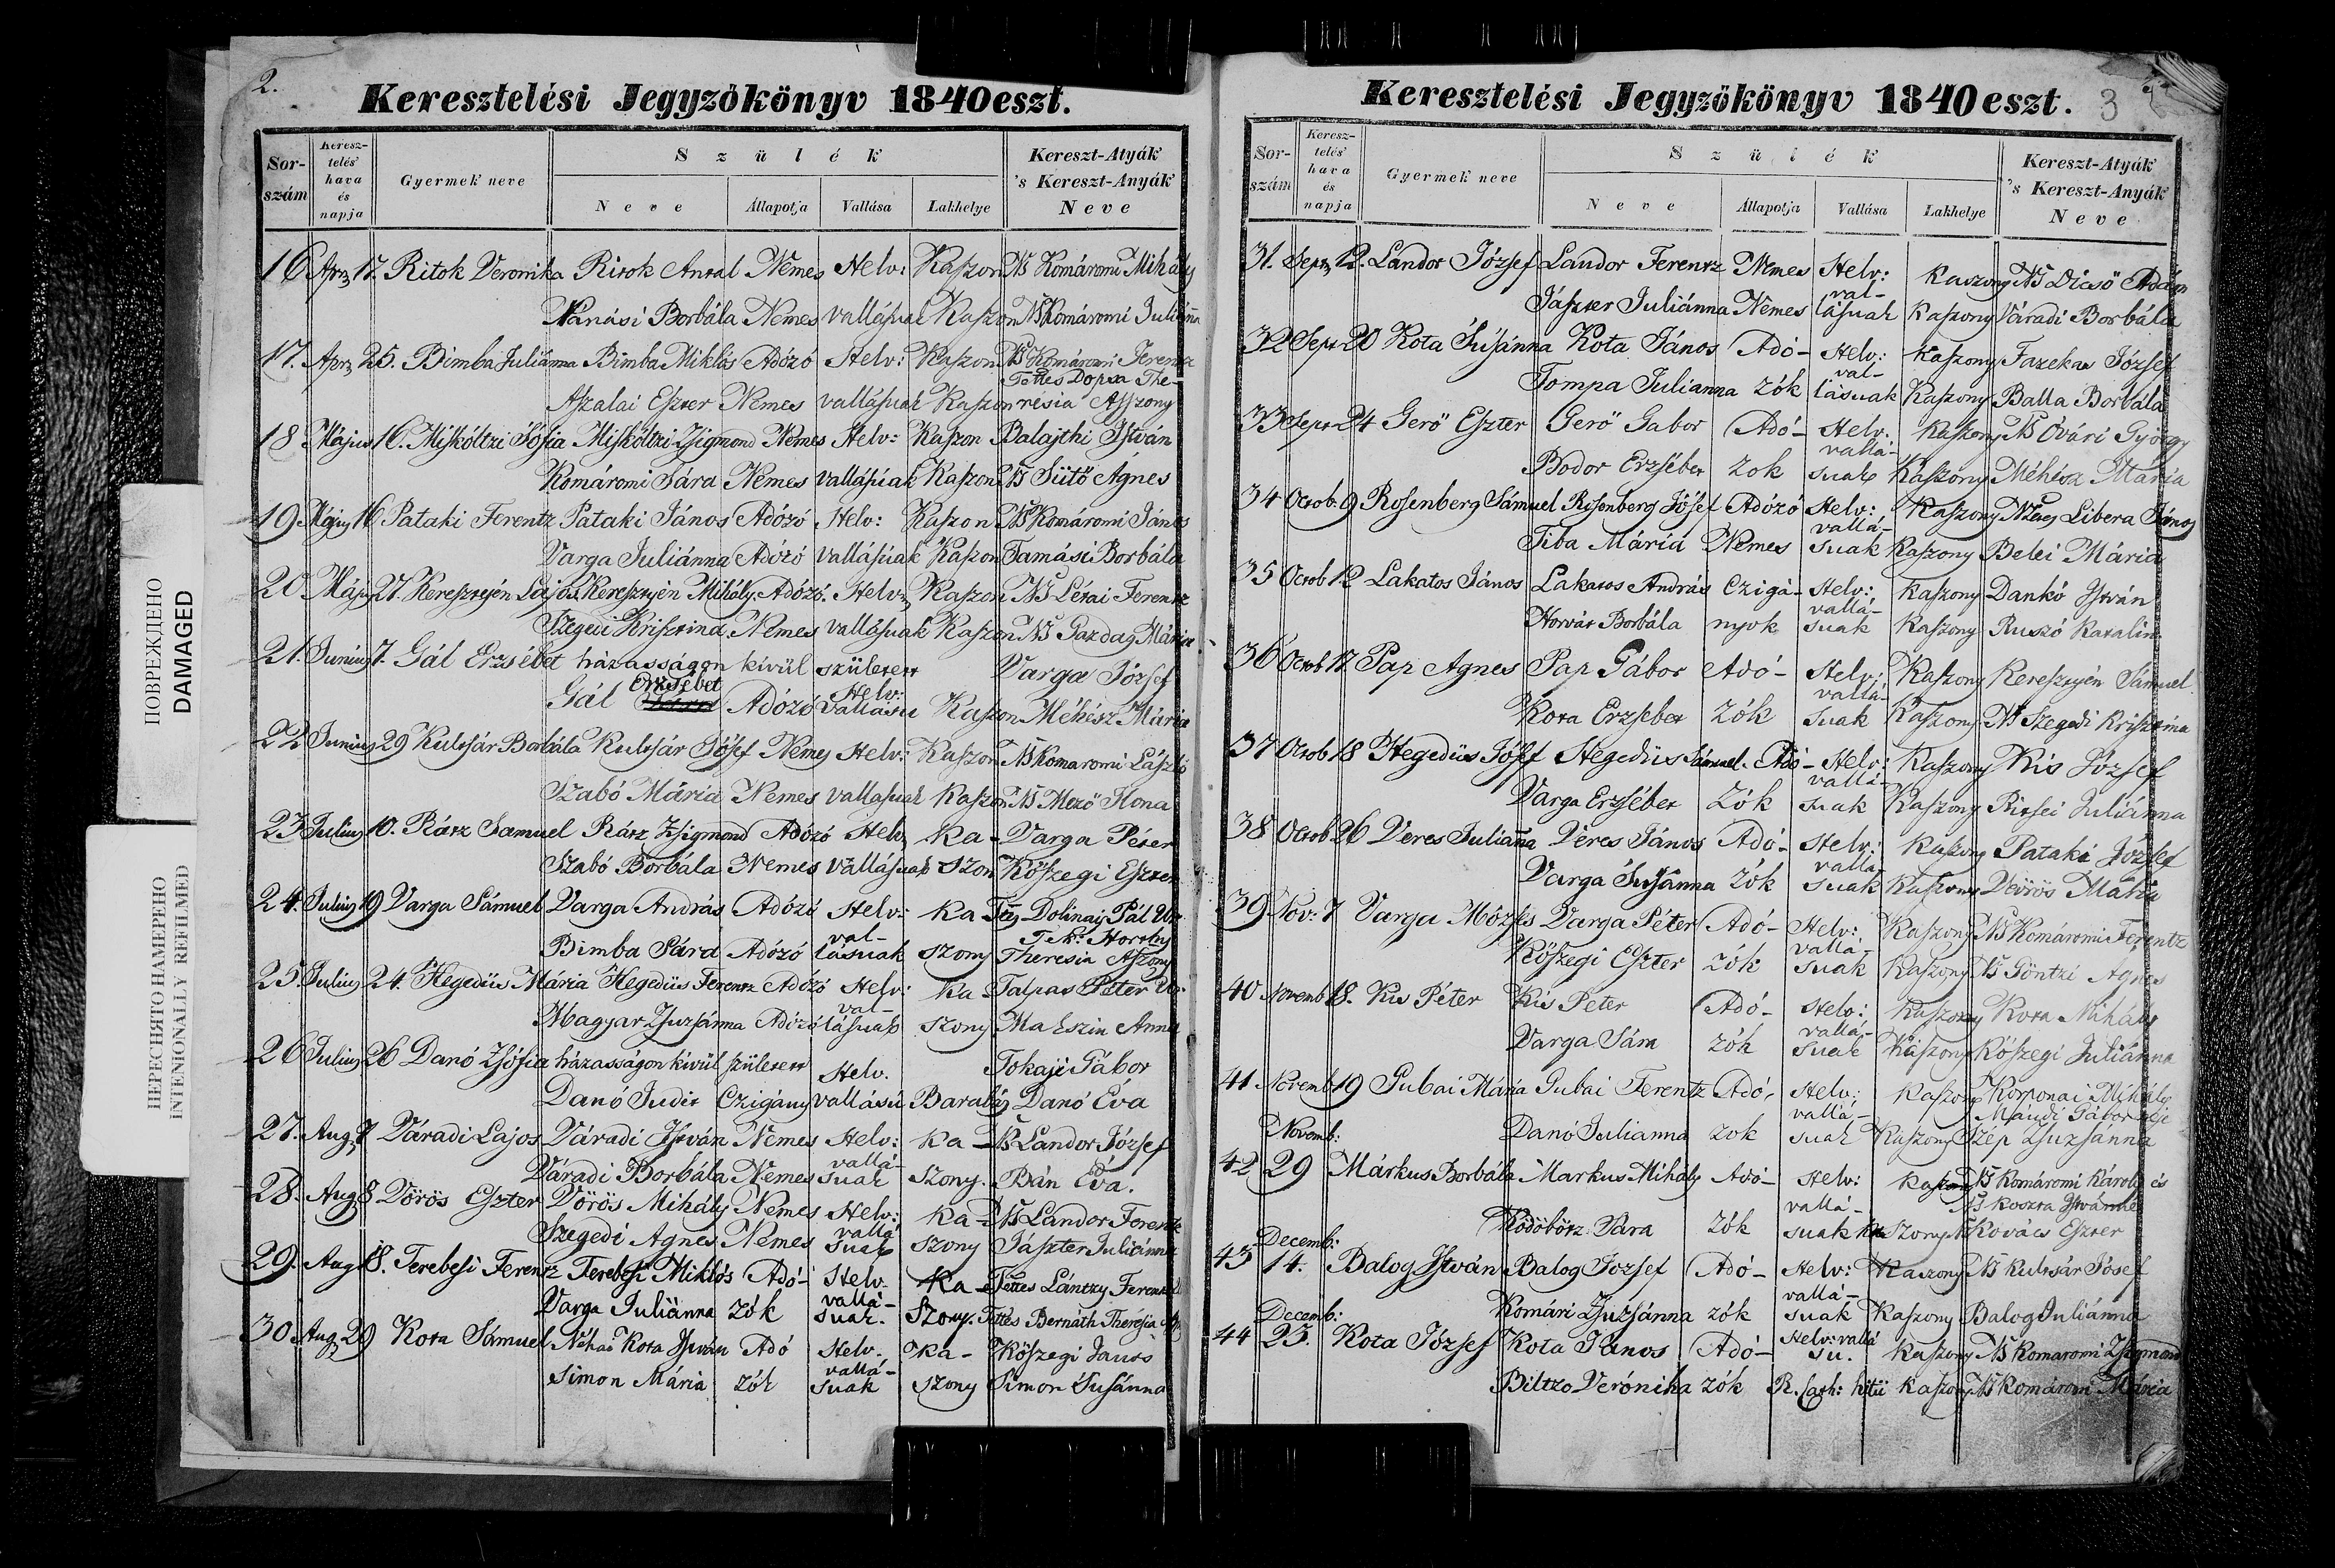 2.
Keresztelési Jegyzőkönyv 1840 eszt.
Sor-szám
Keresz-telés' hava és napja
Gyermek neve
Szülék
Neve
Állapotja
Vallása
Lakhelye
Kereszt-Atyák 's Kereszt-Anyák Neve
16 Apr 17. Ritok Veronika Ritok Antal Nemes Helv: Kaszon NS Komáromi Mihály
Nánási Borbála Nemes vallásuak Kaszon NS Komáromi Juliánna
17. Apr 25. Bimba Juliánna Bimba Miklós Adózó Helv: Kaszon NS Komáromi Ferentz
Tttes Dopsa The-
Aszalai Eszter Nemes vallásuak Kaszon résia Asszony
18 Május 16. Miskóltzi Sófia Miskóltzi Zsigmond Nemes Helv: Kaszon Balajthi István
Komáromi Sára Nemes vallásúak Kaszon NS Sütő Agnes
19 Május 16 Pataki Ferentz Pataki János Adózó Helv: Kaszon NS Komáromi János
Varga Juliánna Adózó vallásúak Kaszon Tamási Borbála
20 Május 27. Keresztyén Lajos Keresztyén Mihály Adózó. Helv Kaszon NS Létai Ferentz
Szegedi Krisztina Nemes vallásuak Kaszon NS Gazdag Mária
21. Junius 7. Gál Erzsébet házasságon kívül született Varga József
Erzsébet Helv:
Gál Adózó vallásu Kaszon Méhész Mária
22 Junius 29 Kultsár Borbála Kultsár Jósef Nemes Helv: Kaszon NS Komaromi László
Szabó Mária Nemes vallasuak Kaszon NS Mező Ilona
23 Julius 10. Rátz Samuel Rátz Zsigmond Adózó Helv Ka- Varga Péter
Szabó Borbála Nemes vallásuak szon Kőszegi Eszter
24. Julius 19 Varga Sámuel Varga András Adózó Helv: Ka Dolinay Pál Ur
val- Tek: Horthy
Bimba Sára Adózó lásuak szony Theresia Aszony
25. Julius 24. Hegedüs Mária Hegedüs Ferentz Adózó Helv: Ka- Talpas Péter Ur
val-
Magyar Zsuzsánna Adózó lásuak szony Anna
26 Julius 26 Danó Zsófia házasságon kívül született Helv. Tokaji Gábor
Danó Judit Czigány vallásu Barabás Danó Éva
27. Aug 7 Váradi Lajos Váradi István Nemes Helv: Ka- NS Landor József
vallá-
Váradi Borbála Nemes suak szony. Bán Éva.
28. Aug 8 Vörös Eszter Vörös Mihály Nemes Helv: Ka- NS Landor Ferentz
vallá
Szegedi Agnes Nemes suak szony Jászter Juliánna
29. Aug 18. Terebesi Ferentz Terebesi Miklós Adó- Helv. Ka- Tttes Lántzy Ferentz
vallá-
Varga Juliánna zók suak. szony. Tttes Bernáth Thérésia
30 Aug 29 Kota Sámuel Néhai Kota István Adó Helv. Ka- Kőszegi János
vallá-
Simon Mária zók suak szony Simon Susánna
3
Keresztelési Jegyzőkönyv 1840 eszt.
Sor-szám
Keresz-telés' hava és napja
Gyermek neve
Szülék
Neve
Állapotja
Vallása
Lakhelye
Kereszt-Atyák 's Kereszt-Anyák Neve
31. Sept 12. Landor József Landor Ferentz Nemes Helv: Kaszony NS Dicső Adám
val-
Jászter Juliánna Nemes lásuak Kaszony Váradi Borbála
32 Sept 20 Kota Susánna Kota János Adó- Helv: Kaszony Fazekas József
val-
Tompa Julianna zók lásuak Kaszony Balla Borbála
33 Sept 24 Gerő Eszter Gerő Gabor Adó- Helv. Kaszony NS Óvári György
vallá-
Bodor Erzsébet zok suak Kaszony Méhész Mária
34 Octob 9 Rosenberg Sámuel Rosenberg Jósef Adózó Helv: Kaszony Libera János
vallá-
Tiba Mária Nemes suak Kaszony Belei Mária
35 Octob 12 Lakatos János Lakatos András Czigá- Helv: Kaszony Dankó István
vallá-
Horvát Borbála nyok suak Kaszony Ruszó Katalin
36 Octob 17 Pap Agnes Pap Gábor Adó- Helv: Kaszony Keresztyén Sámuel
vallá-
Kota Erzsebet zók suak Kaszony NS Szegedi Krisztina
37 Octob 18 Hegedüs Jósef Hegedüs Sámuel Adó- Helv: Kaszony Kis József
vallá-
Varga Erzsébet zók suak Kaszony Juliánna
38 Octob 26 Veres Julianna Veres János Adó- Helv: Kaszony Pataki József
vallá
Varga Susánna zók suak Kaszony Vörös Mária
39 Nov: 7 Varga Mózses Varga Péter Adó- Helv: Kaszony NS Komáromi Ferentz
vallá-
Kőszegi Eszter zók suak Kaszony NS Göntzi Agnes
40 Novemb 18. Kis Péter Kis Péter Adó- Helv: Kaszony Kota Mihály
vallá-
Varga Sára zók suak Kaszony Kőszegi Juliánna
41 Novemb 19 Gubai Mária Gubai Ferentz Adó- Helv: Kaszony Korponai Mihály
vallá- Mándi Gábor
Danó Julianna zok suak Kaszony Szép Zsuzsánna
Novemb:
42 29 Márkus Borbála Markus Mihály Adó- Helv: Kaszony NS Komáromi Károly és
vallá- NS Koszta Istvánné
Ködöbötz Sára zók suak Kaszony NS Kovács Eszter
Decemb:
43 14. Balog István Balog József Adó- Helv: Kaszony NS Kultsár Jósef
vallá-
Komári Zsuzsánna zók suak Kaszony Balog Juliánna
Decemb:
44 23. Kota József Kota János Adó- Helv: vallá su. Kaszony NS Komaromi Zsigmond
Biltzo Verónika zók R. Cath: hitü Kaszony NS Komáromi Mária
ПОВРЕЖДЕНО
DAMAGED
ПЕРЕСНЯТО НАМЕРЕНО
INTENIONALLY REFILMED